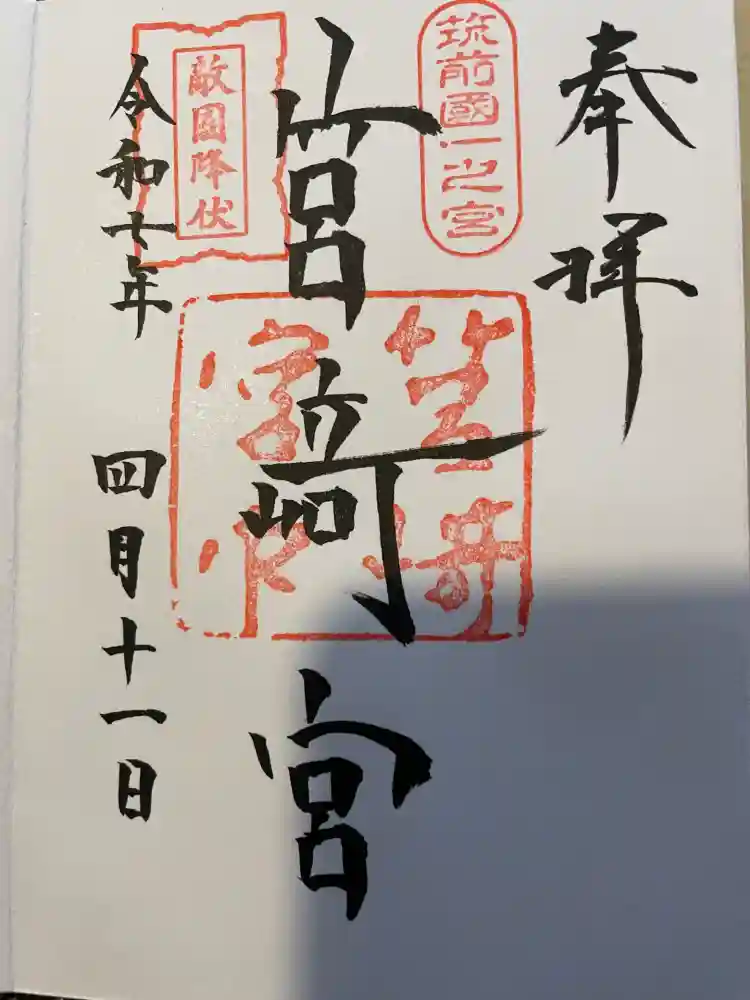 奉拝
筑前國一之宮
筥﨑宮
敵國降伏
令和七年
四月十一日